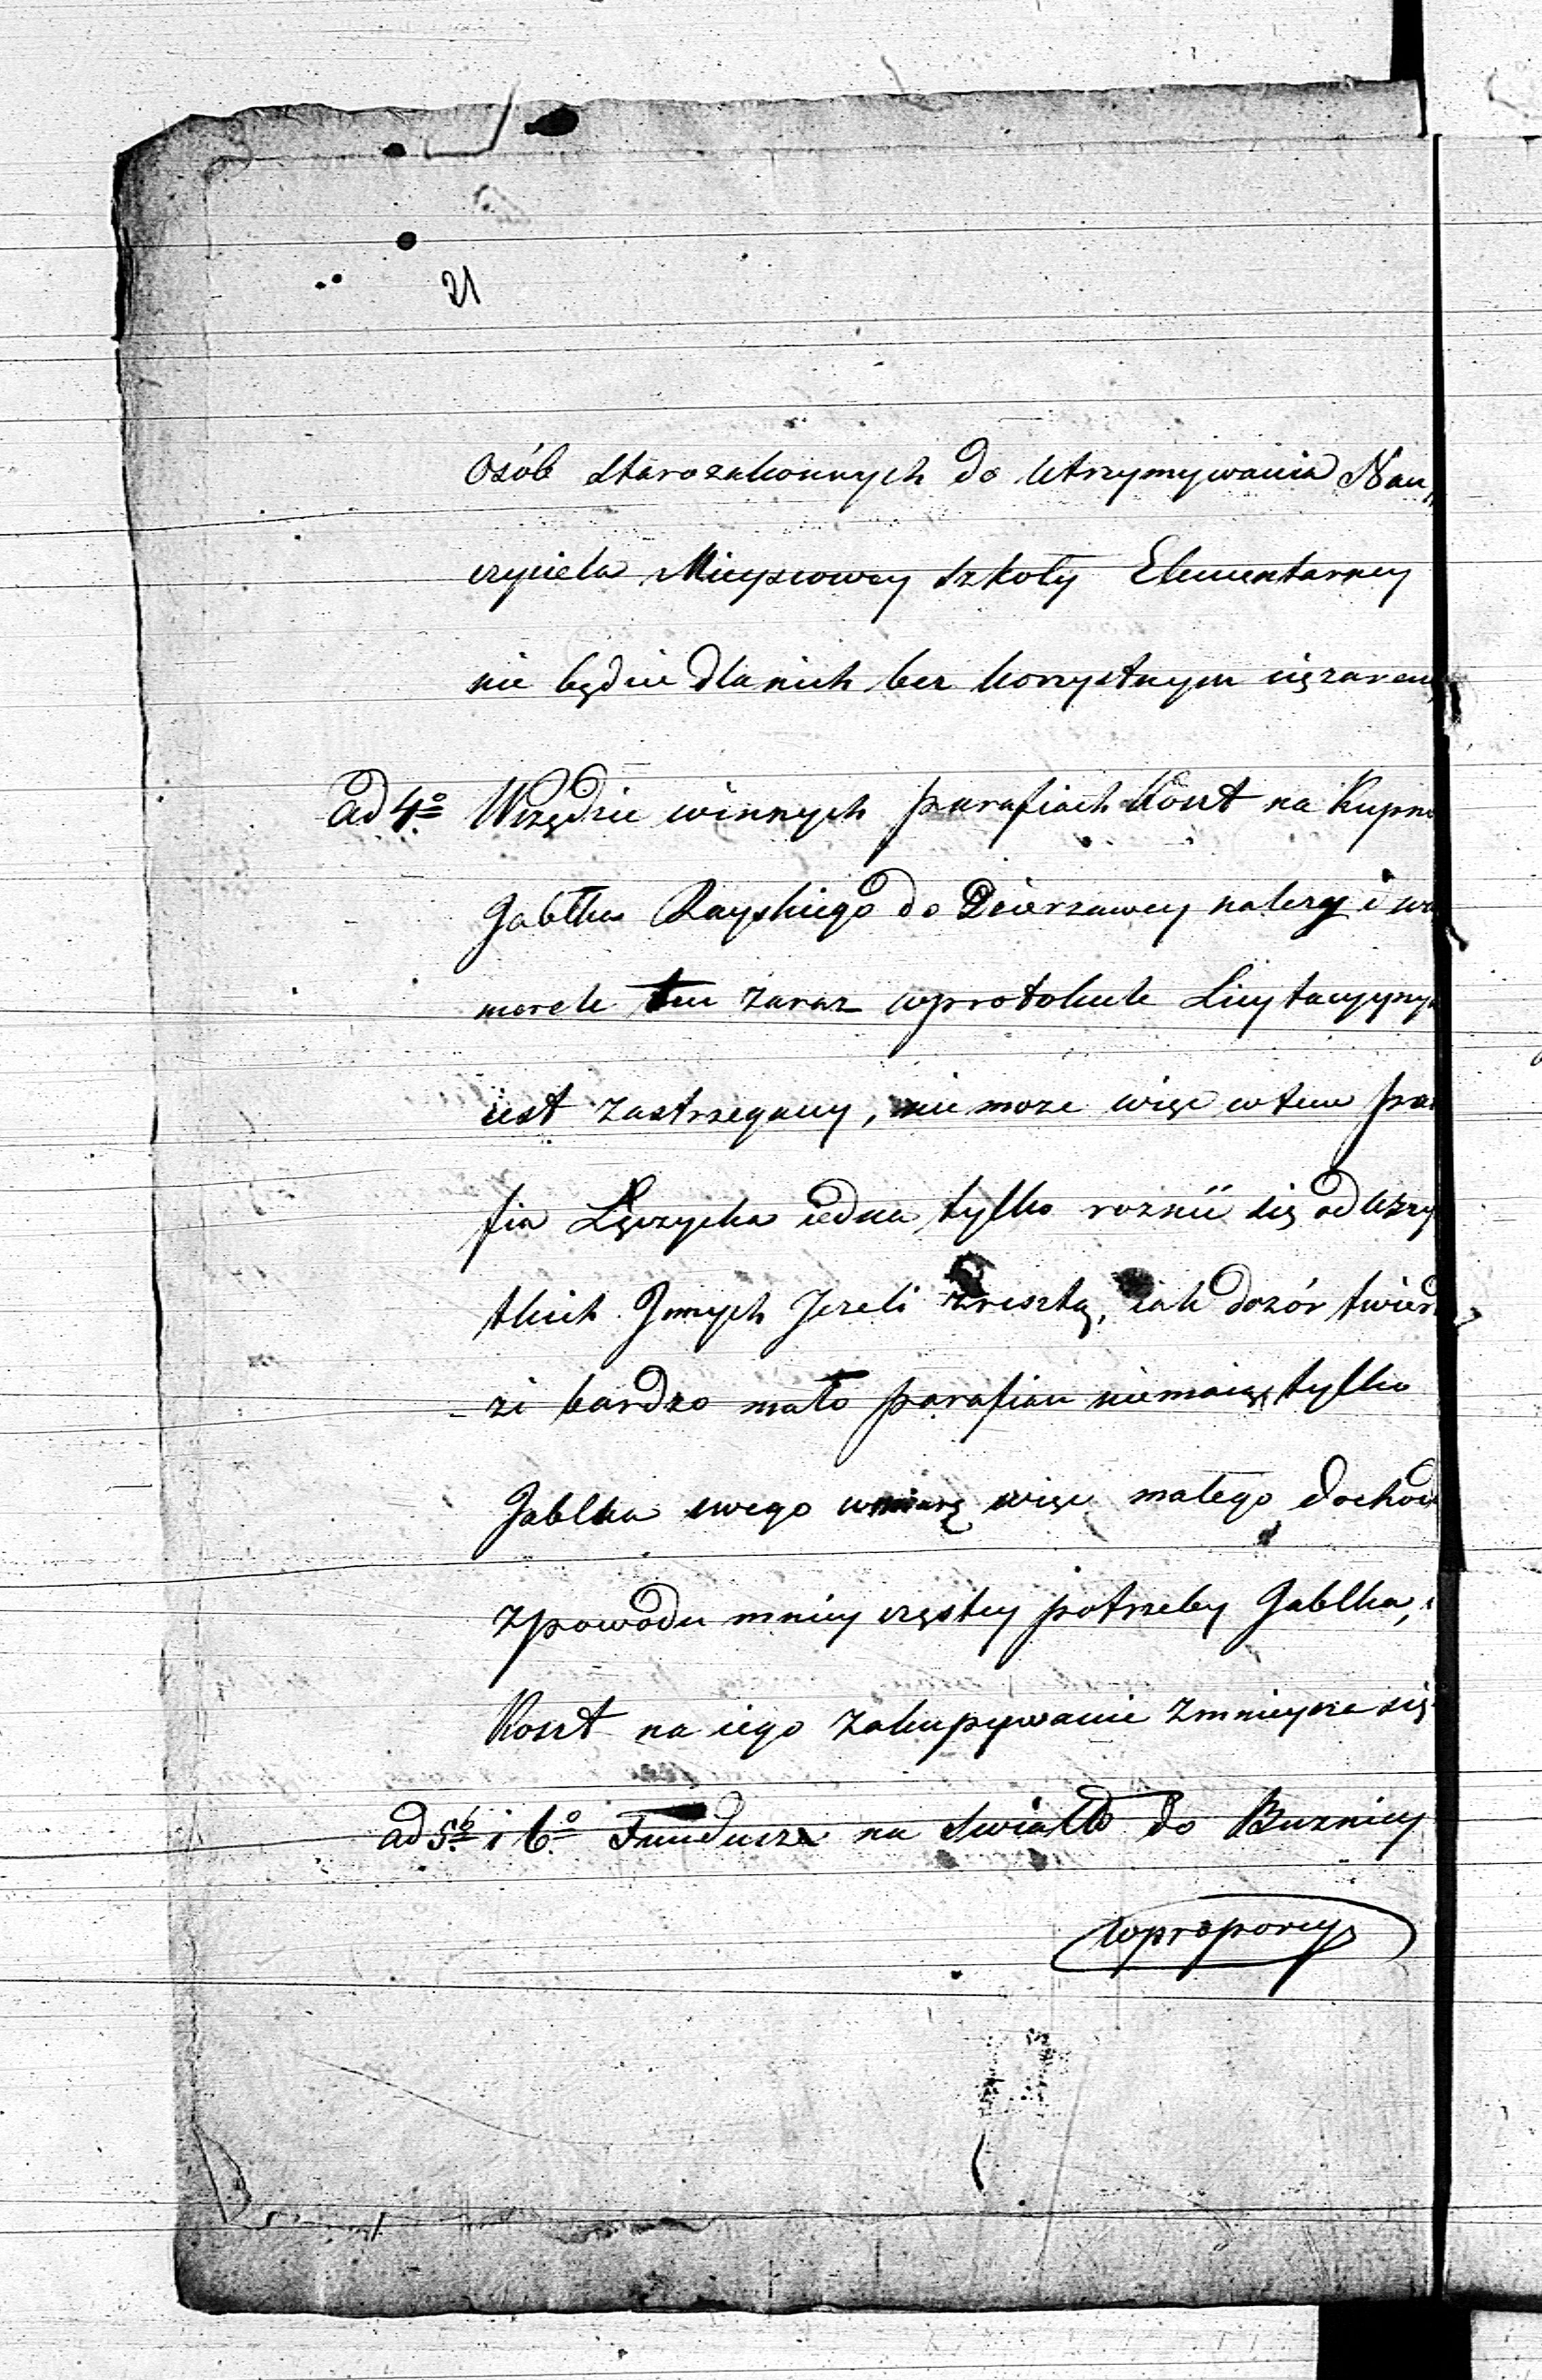 21
osób starozakonnych do utrzymywania Nau,,
czyciela Mieyscowey szkoły Elementarney
nie będzie dla nich bez korzystnym ciężarem,
ad 4º Wszędzie winnych parafiach koszt na Kupno
Jabłka Rayskiego do Dzierzawcy nalezy i wa
ten zaraz wprotokule Licytacyjnym
iest zastrzegany, nie moze więc wtem par
fia Łęczycka iedna tylko roznić się od wszy
tkich Innych Jezeli zresztą, iak dozór twierd
zi bardzo mało parafian niemaią tylko
Jabłka swego wmiarę więc małego dochod
zpowodu mniey częstey potrzeby Jabłka,
Koszt na iego zakupywanie zmnieysza się
ad 5º i 6º Fundusze na swiatło do Buznicy
wproporcy